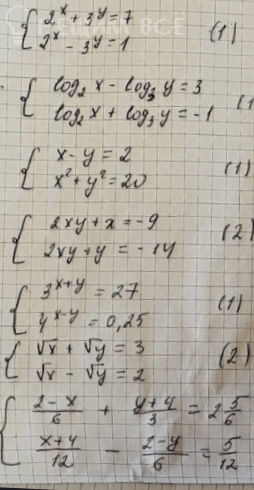 2^x + 3^y = 7
2^x - 3^y = 1 (1)
log₂ x - log₃ y = 3
log₂ x + log₃ y = -1 (1
x - y = 2
x² + y² = 20 (1)
2xy + x = -9 (2)
2xy + y = -14
3^{x+y} = 27 (1)
4^{x-y} = 0,25
√x + √y = 3 (2)
√x - √y = 2
(2-x)/6 + (y+4)/3 = 2 5/6
(x+4)/12 - (2-y)/6 = 5/12